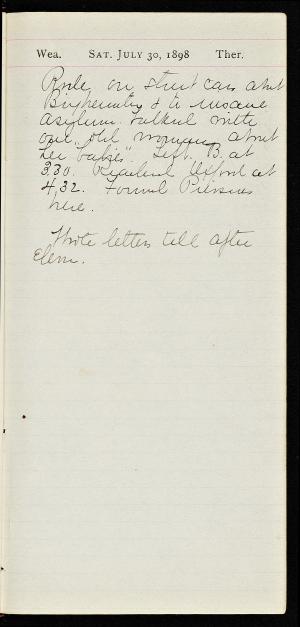 Wea. SAT. JULY 30, 1898 Ther.
Rode on street cars abt
Binghamton & to insane
asylum. Talked with
one old woman about
her "babies". Left B. at
3 30. Reached Oxford at
4,32. Found
here.
Wrote letters till after
eleven.